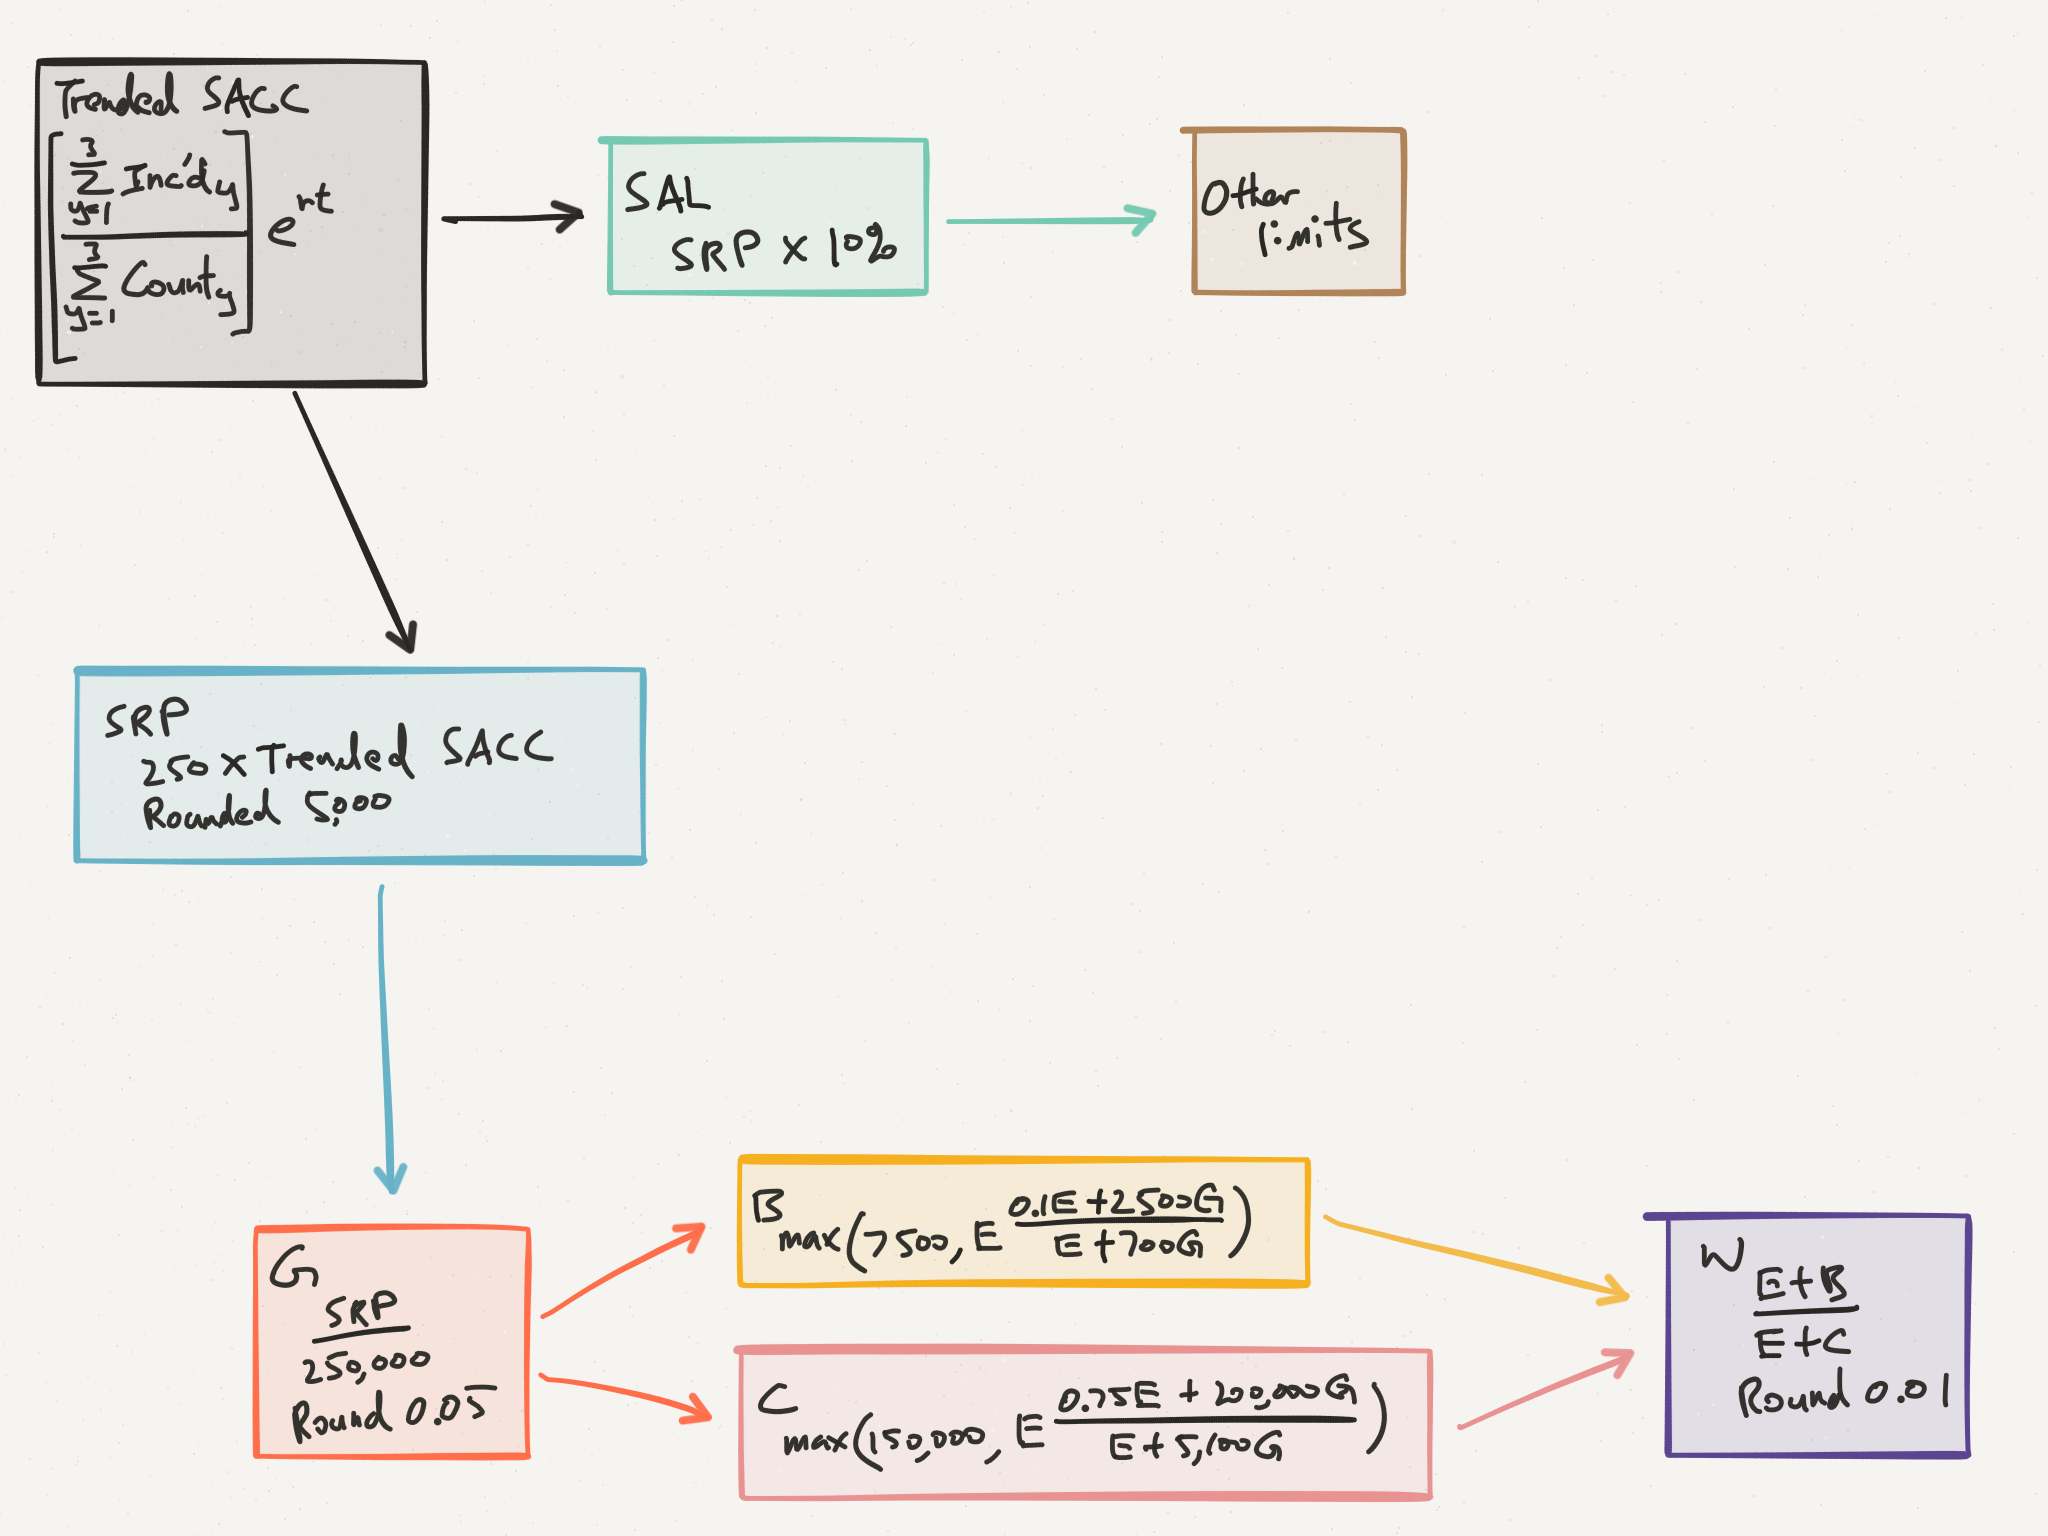 Trended SACC
[ Σ³ᵧ₌₁ Inc'dᵧ / Σ³ᵧ₌₁ Countᵧ ] eʳᵗ
SAL
SRP x 10%
Other
limits
SRP
250 x Trended SACC
Rounded 5,000
G
SRP
250,000
Round 0.05
B
max(7500, E (0.1E + 2500G) / (E + 700G))
C
max(150,000, E (0.75E + 200,000G) / (E + 5,100G))
W
E+B
E+C
Round 0.01